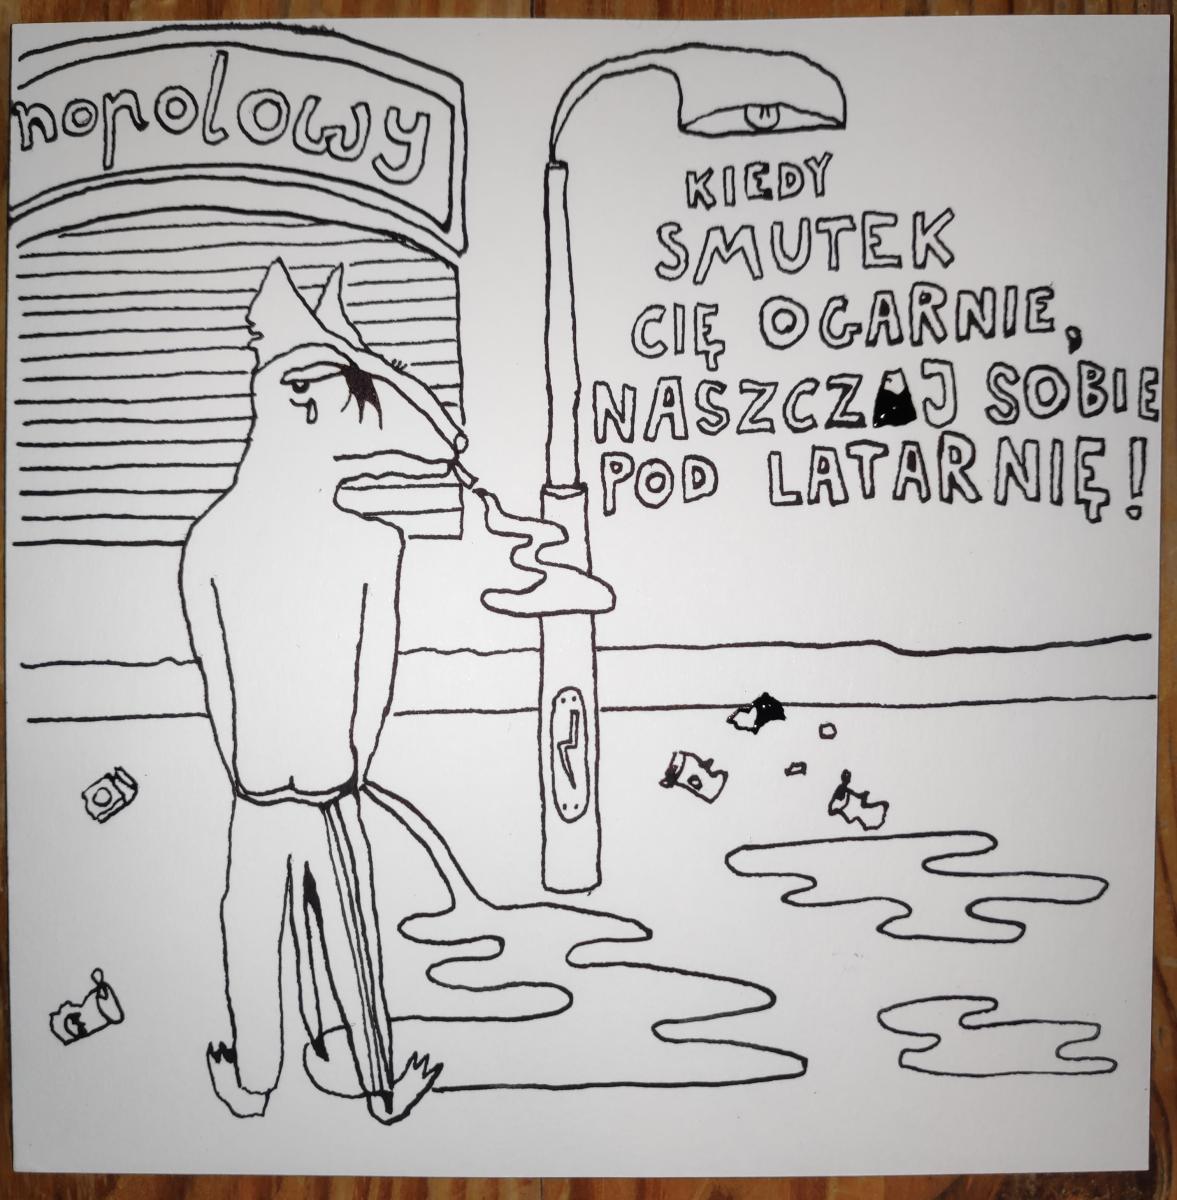 nopolowy
KIEDY
SMUTEK
CIĘ OGARNIE,
NASZCZAJ SOBIE
POD LATARNIĘ!